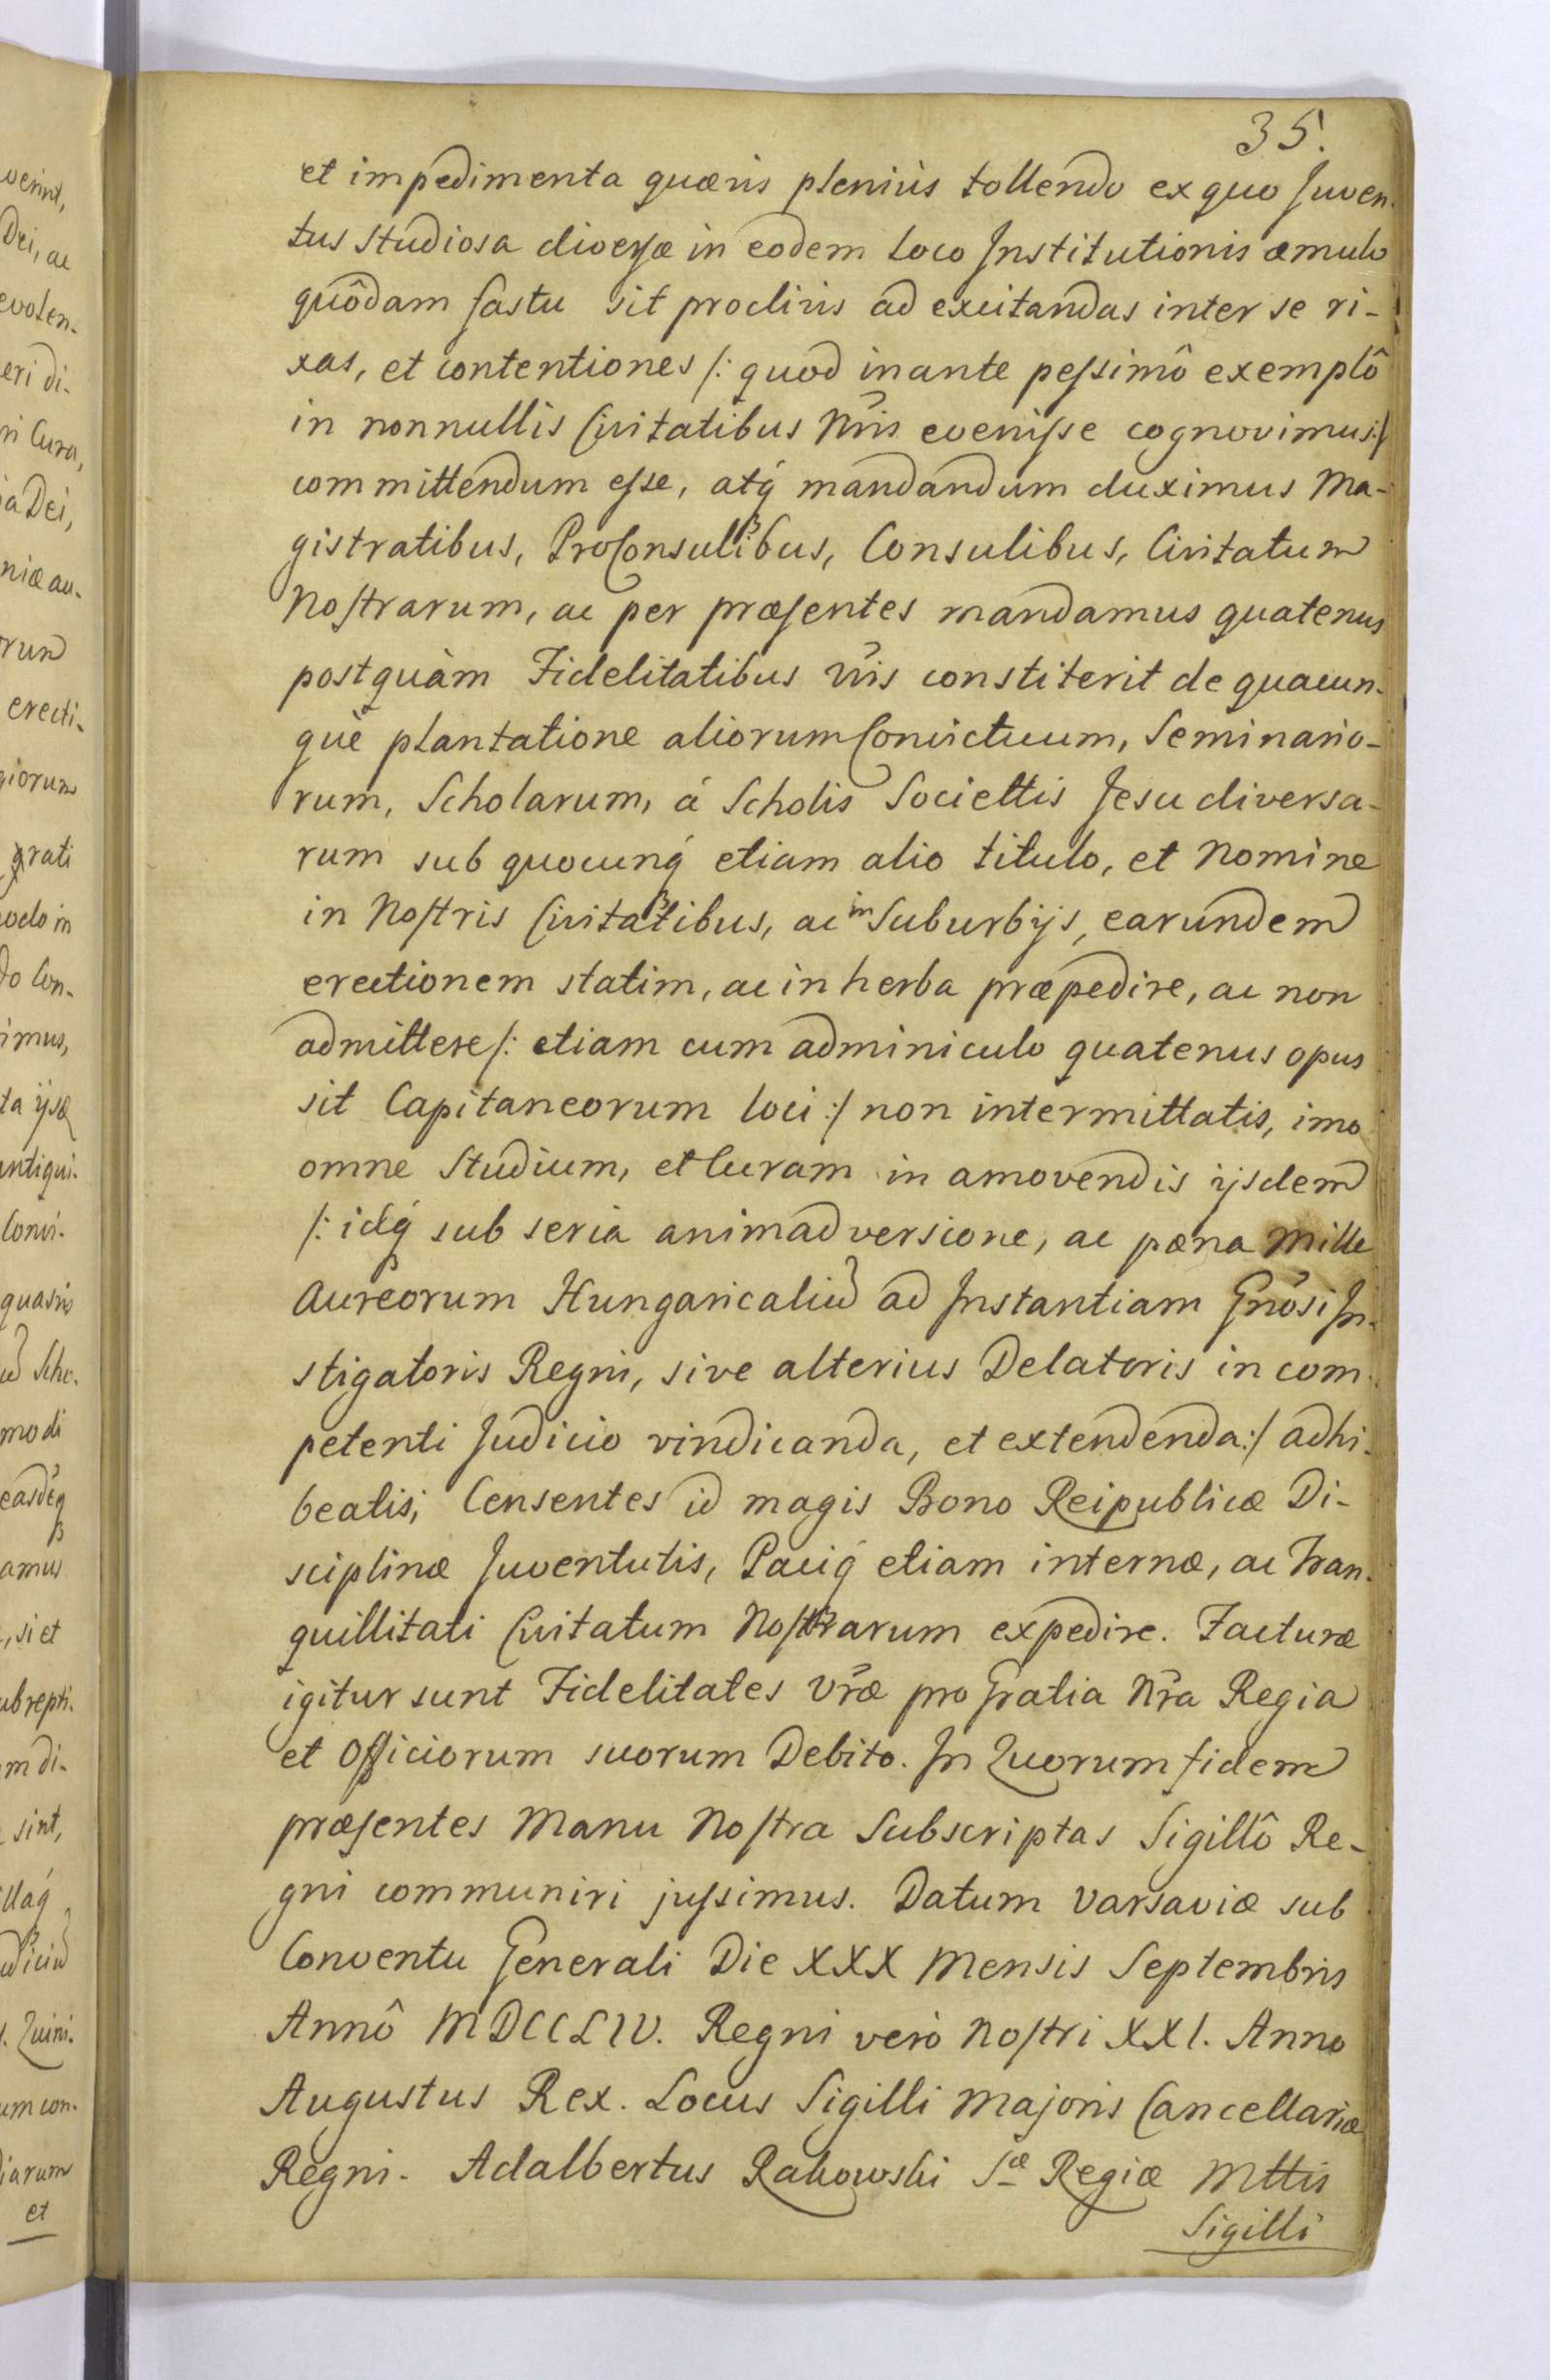 35.
et impedimenta quævis pleniùs tollendo ex quo Juven-
tus studiosa diversæ in eodem loco Institutionis æmulo
quôdam fastu sit proclivis ad excitandas inter se ri-
xas, et contentiones /: quod in ante pessimô exemplô
in nonnullis Civitatibus Nris evenisse cognovimus :/
committendum esse, atq́ mandandum duximus Ma-
gistratibus, ProConsulibus, Consulibus, Civitatum
Nostrarum, ac per præsentes mandamus quatenus
postquàm Fidelitatibus Vris constiterit de quacun-
què plantatione aliorum Convictuum, Seminario-
rum, Scholarum, á Scholis Societtis Jesu diversa-
rum sub quocunq́ etiam alio titulo, et Nomine
in Nostris Civitatibus, ac in Suburbijs, earundem
erectionem statim, ac in herba præpedire, ac non
admittere /: etiam cum adminiculo quatenus opus
sit Capitaneorum loci :/ non intermittatis, imo
omne Studium, et Curam in amovendis ijsdem
/: idq́ sub seria animadversione, ac pæna Mille
Aureorum Hungaricaliũ ad Instantiam Gnosi In-
stigatoris Regni, sive alterius Delatoris in com-
petenti Judicio vindicanda, et extendenda :/ adhi-
beatis; Censentes id magis Bono Reipublicæ Di-
sciplinæ Juventutis, Paciq́ etiam internæ, ac Tran-
quillitati Civitatum Nostrarum expedire. Facturæ
igitur sunt Fidelitates Vræ pro Gratia Nra Regia
et Officiorum suorum Debito. In Quorum fidem
præsentes Manu Nostra Subscriptas Sigillô Re-
gni communiri jussimus. Datum Varsaviæ sub
Conventu Generali Die XXX Mensis Septembris
Annô MDCCLIV. Regni verò Nostri XXI. Anno
Augustus Rex. Locus Sigilli Majoris Cancellariæ
Regni. Adalbertus Rakowski Sæ Regiæ Mttis
Sigilli